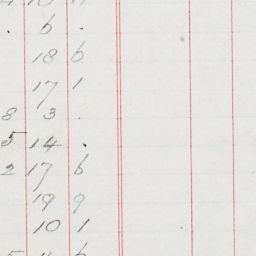 . 6 .
18 6
17 1
8 3 .
5 14 .
2 17 6
19 9
10 1